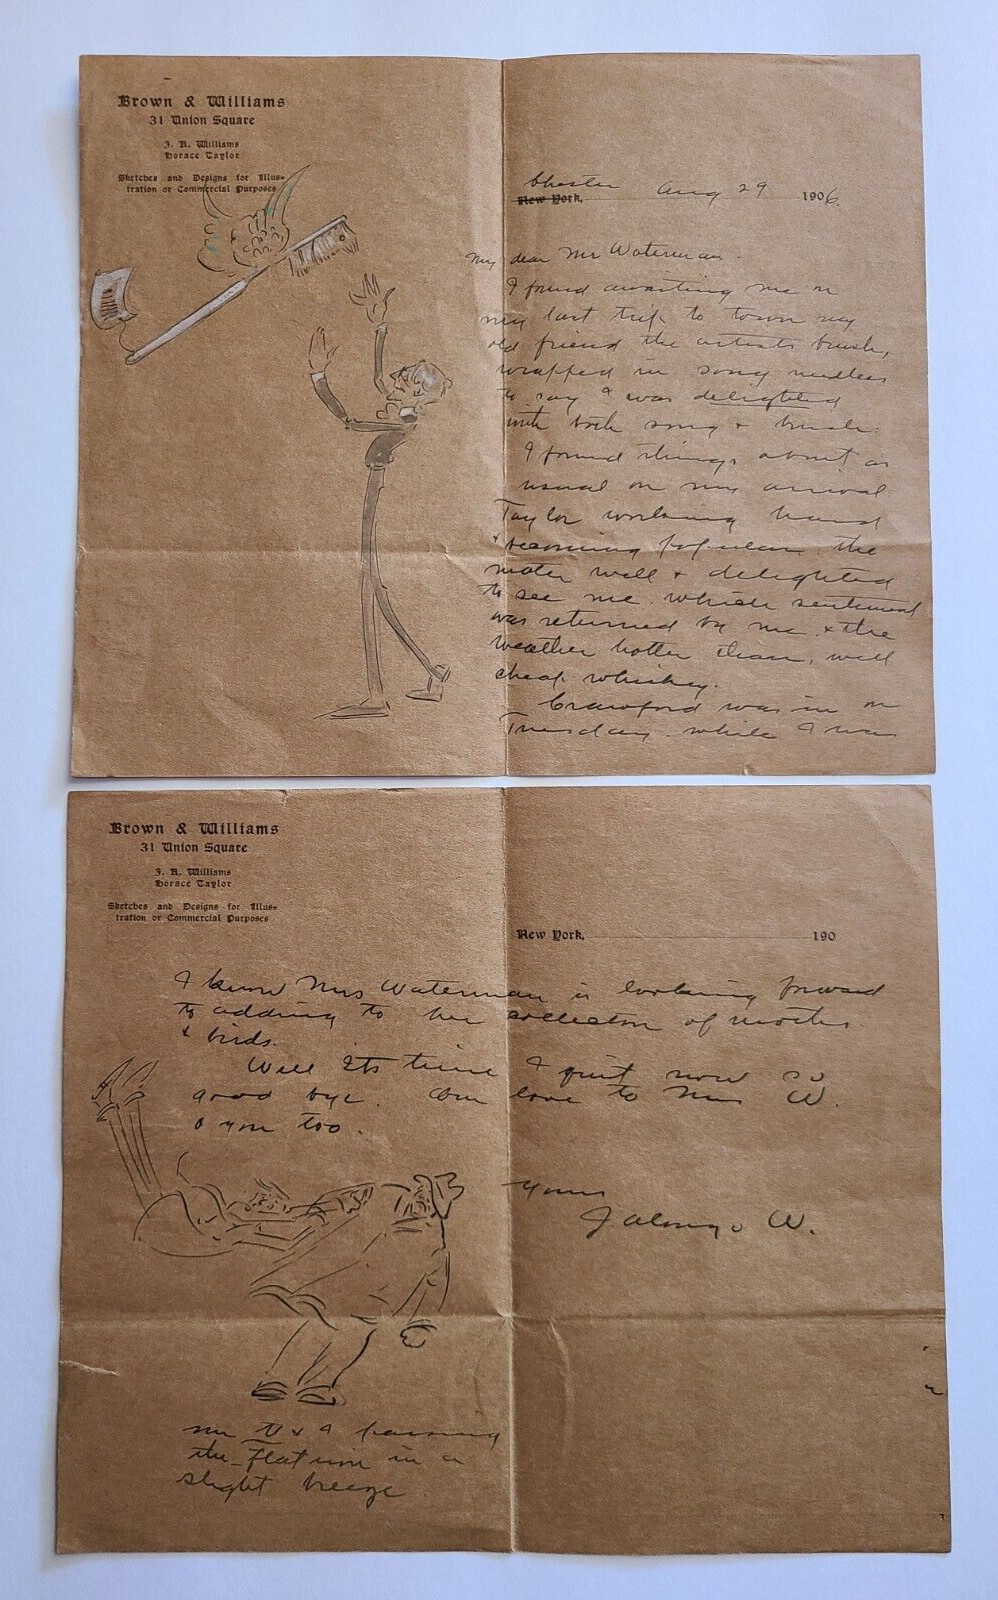 Brown & Williams
31 Union Square
J. A. Williams
Horace Taylor
Sketches and Designs for Illus-
tration or Commercial Purposes
Chester Aug 29
New York, 1906.
My dear Mr Waterman.
I found awaiting me on
my last trip to town my
old friend the artists brush,
wrapped in song needless
to say I was delighted
with both song & brush.
I found things about as
usual on my arrival
Taylor working hard
& becoming popular. the
mater well & delighted
to see me. which sentiment
was returned by me. & the
weather hotter than, well
cheap whiskey.
Crawford was in on
Tuesday. while I was
Brown & Williams
31 Union Square
J. A. Williams
Horace Taylor
Sketches and Designs for Illus-
tration or Commercial Purposes
New York, 190
I know Mrs Waterman is looking forward
to adding to her collection of moths
& birds.
Well Its time I quit now so
good bye. Our love to Mrs W.
& you too.
Yours
J Alonzo W.
Mr & I passing
the Flat iron in a
slight breeze